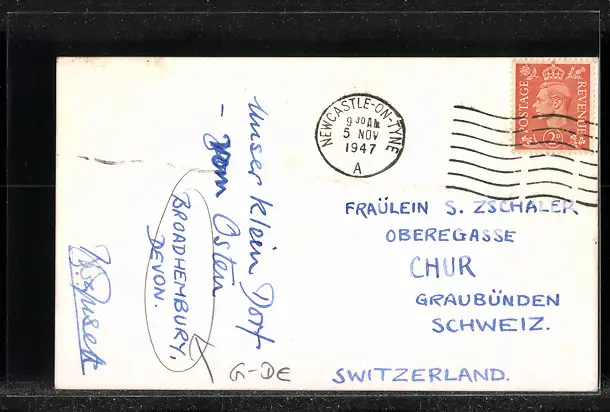 Unser Klein Dorf
- vom Osten
BROADHEMBURY,
DEVON.
G-DE
NEWCASTLE-ON-TYNE
9 30 AM
5 NOV
1947
A
POSTAGE
REVENUE
2D
FRAÜLEIN S. ZSCHALER
OBEREGASSE
CHUR
GRAUBÜNDEN
SCHWEIZ.
SWITZERLAND.